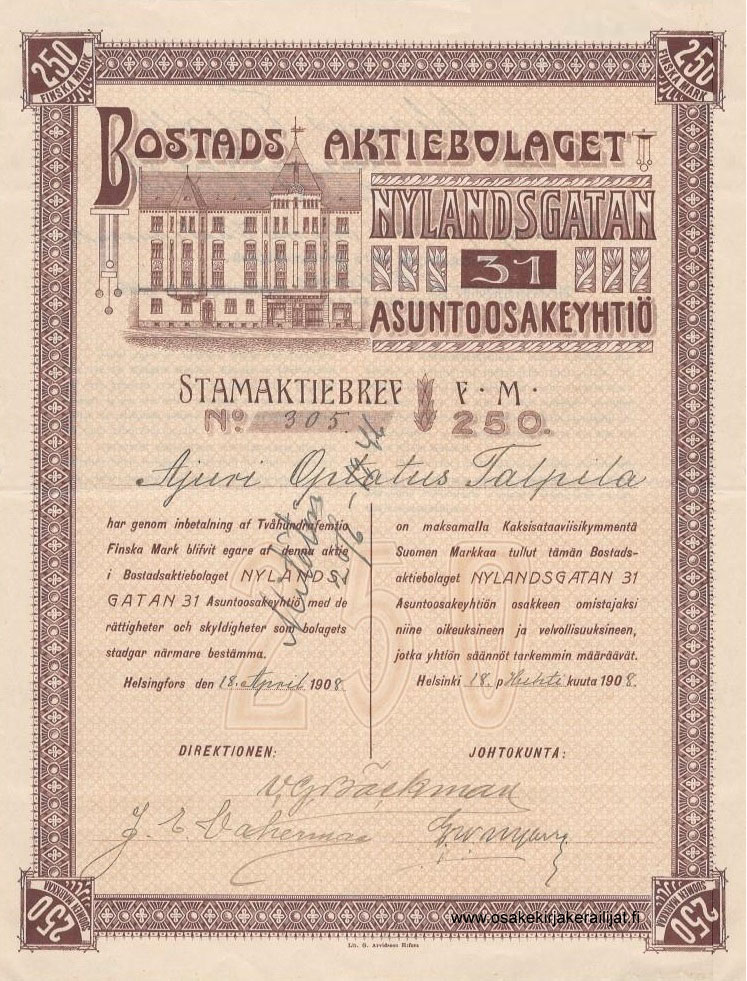 250
FINSKA MARK
250
FINSKA MARK
BOSTADS AKTIEBOLAGET
NYLANDSGATAN
31
ASUNTOOSAKEYHTIÖ
STAMAKTIEBREF F. M.
No 305. 250.
Ajuri Optatus Talpila
Mitätön
har genom inbetalning af Tvåhundrafemtio
Finska Mark blifvit egare af denna aktie
i Bostadsaktiebolaget NYLANDS-
GATAN 31 Asuntoosakeyhtiö med de
rättigheter och skyldigheter som bolagets
stadgar närmare bestämma.
Helsingfors den 18. April 1908.
on maksamalla Kaksisataaviisikymmentä
Suomen Markkaa tullut tämän Bostads-
aktiebolaget NYLANDSGATAN 31
Asuntoosakeyhtiön osakkeen omistajaksi
niine oikeuksineen ja velvollisuuksineen,
jotka yhtiön säännöt tarkemmin määräävät.
Helsinki 18. p Huhti kuuta 1908.
250
DIREKTIONEN:
JOHTOKUNTA:
V. G. Bäckman
250
SUOMEN MARKKAA
250
SUOMEN MARKKAA
www.osakekirjakerailijat.fi
Lit. G. Arvidsson H:fors